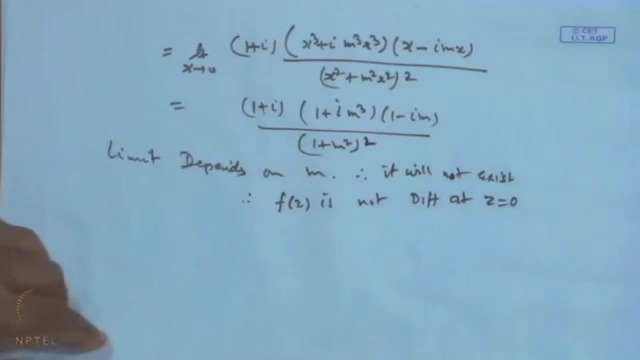 = lt x→0 (1+i) (x³+i m³x³) (x-imx) / (x²+m²x²)²
= (1+i) (1+i m³) (1-im) / (1+m²)²
Limit Depends on m. ∴ it will not exist
∴ f(z) is not Diff at z=0
© CET
I.I.T. KGP
NPTEL